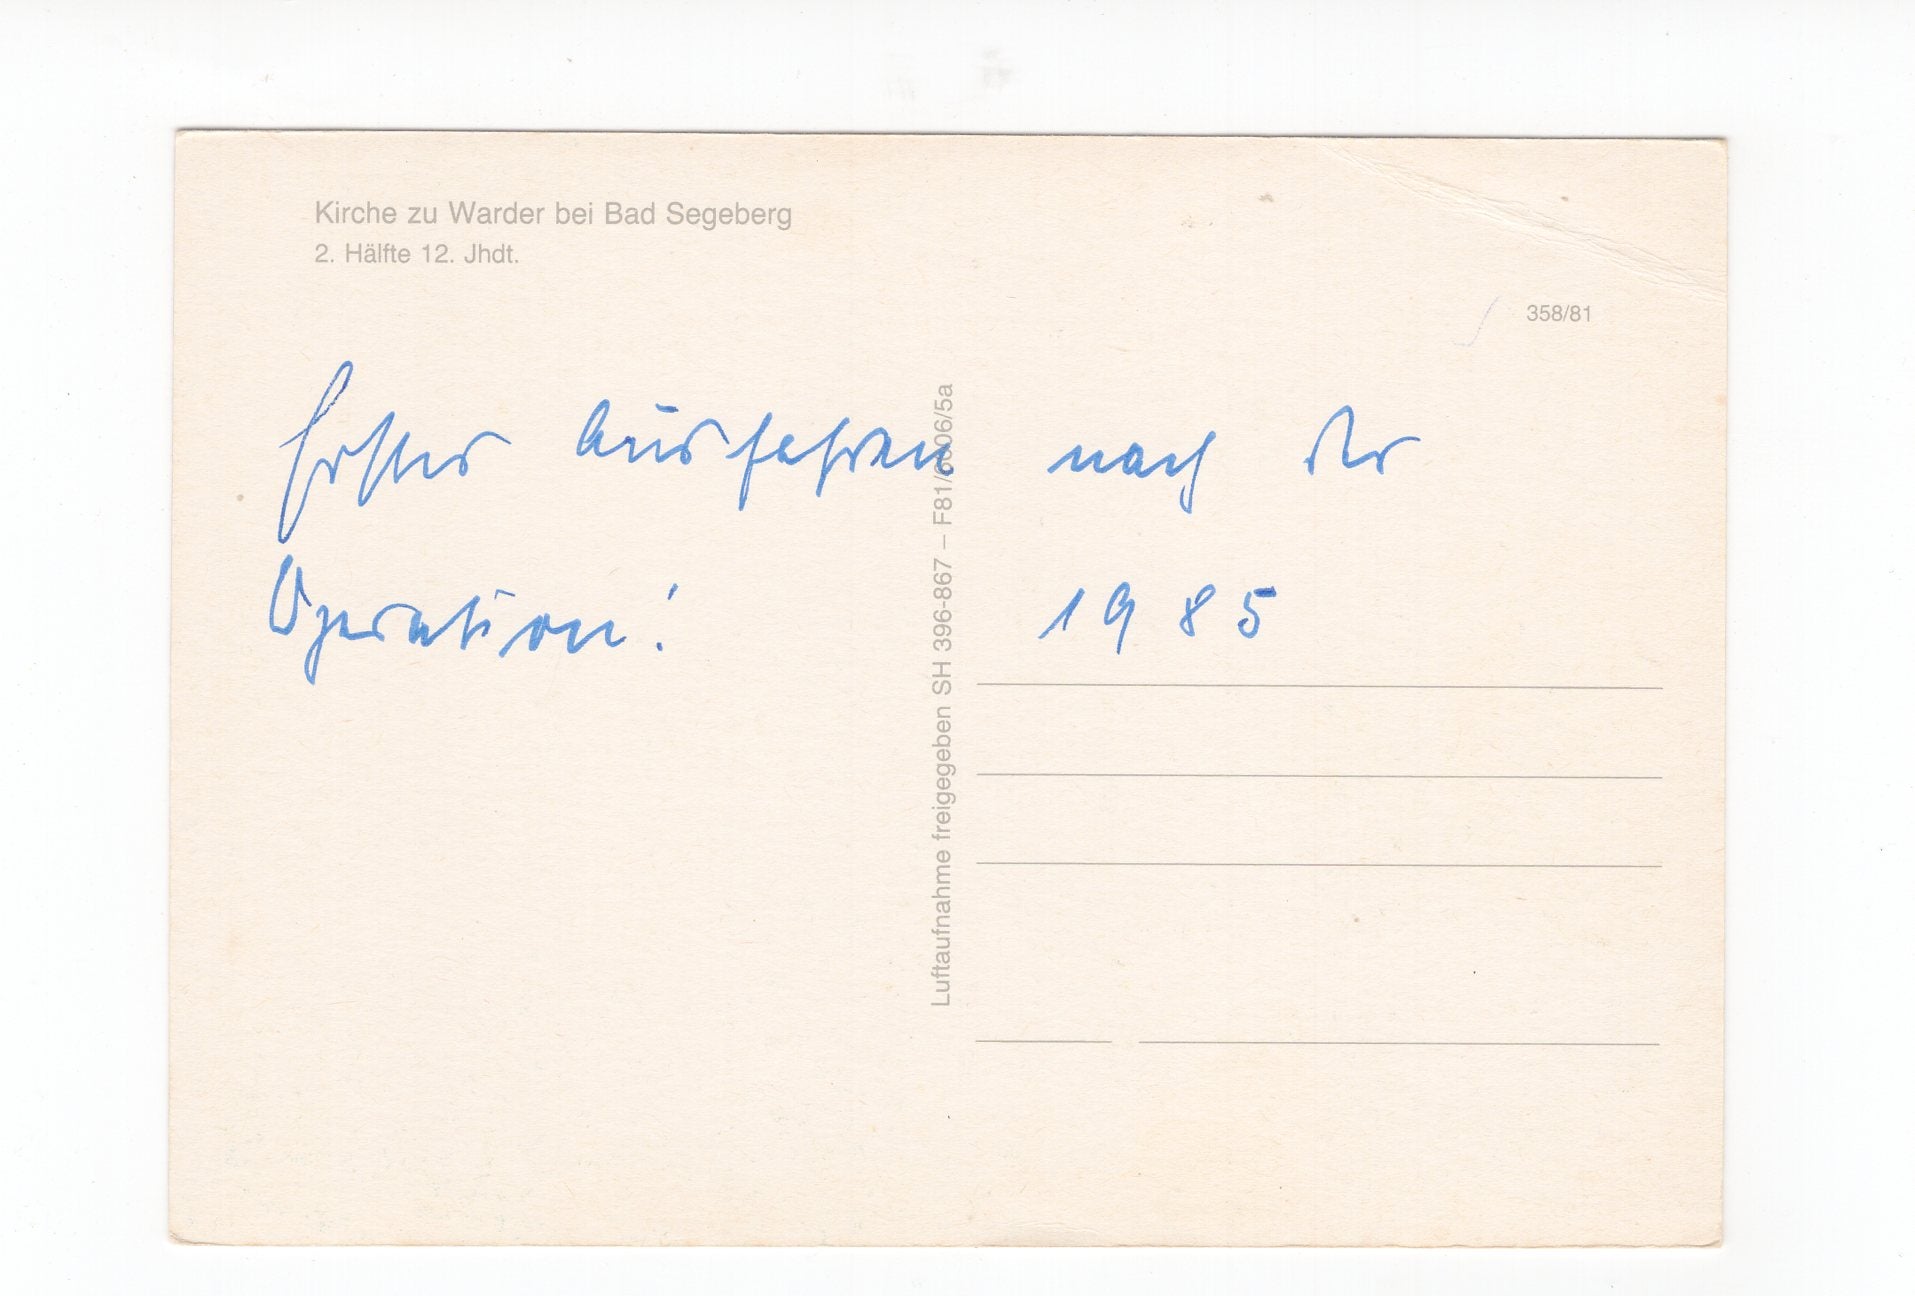 Kirche zu Warder bei Bad Segeberg
2. Hälfte 12. Jhdt.
358/81
Erstes Ausfahren nach der
Operation! 1985
Luftaufnahme freigegeben SH 396-867 – F81/6006/5a